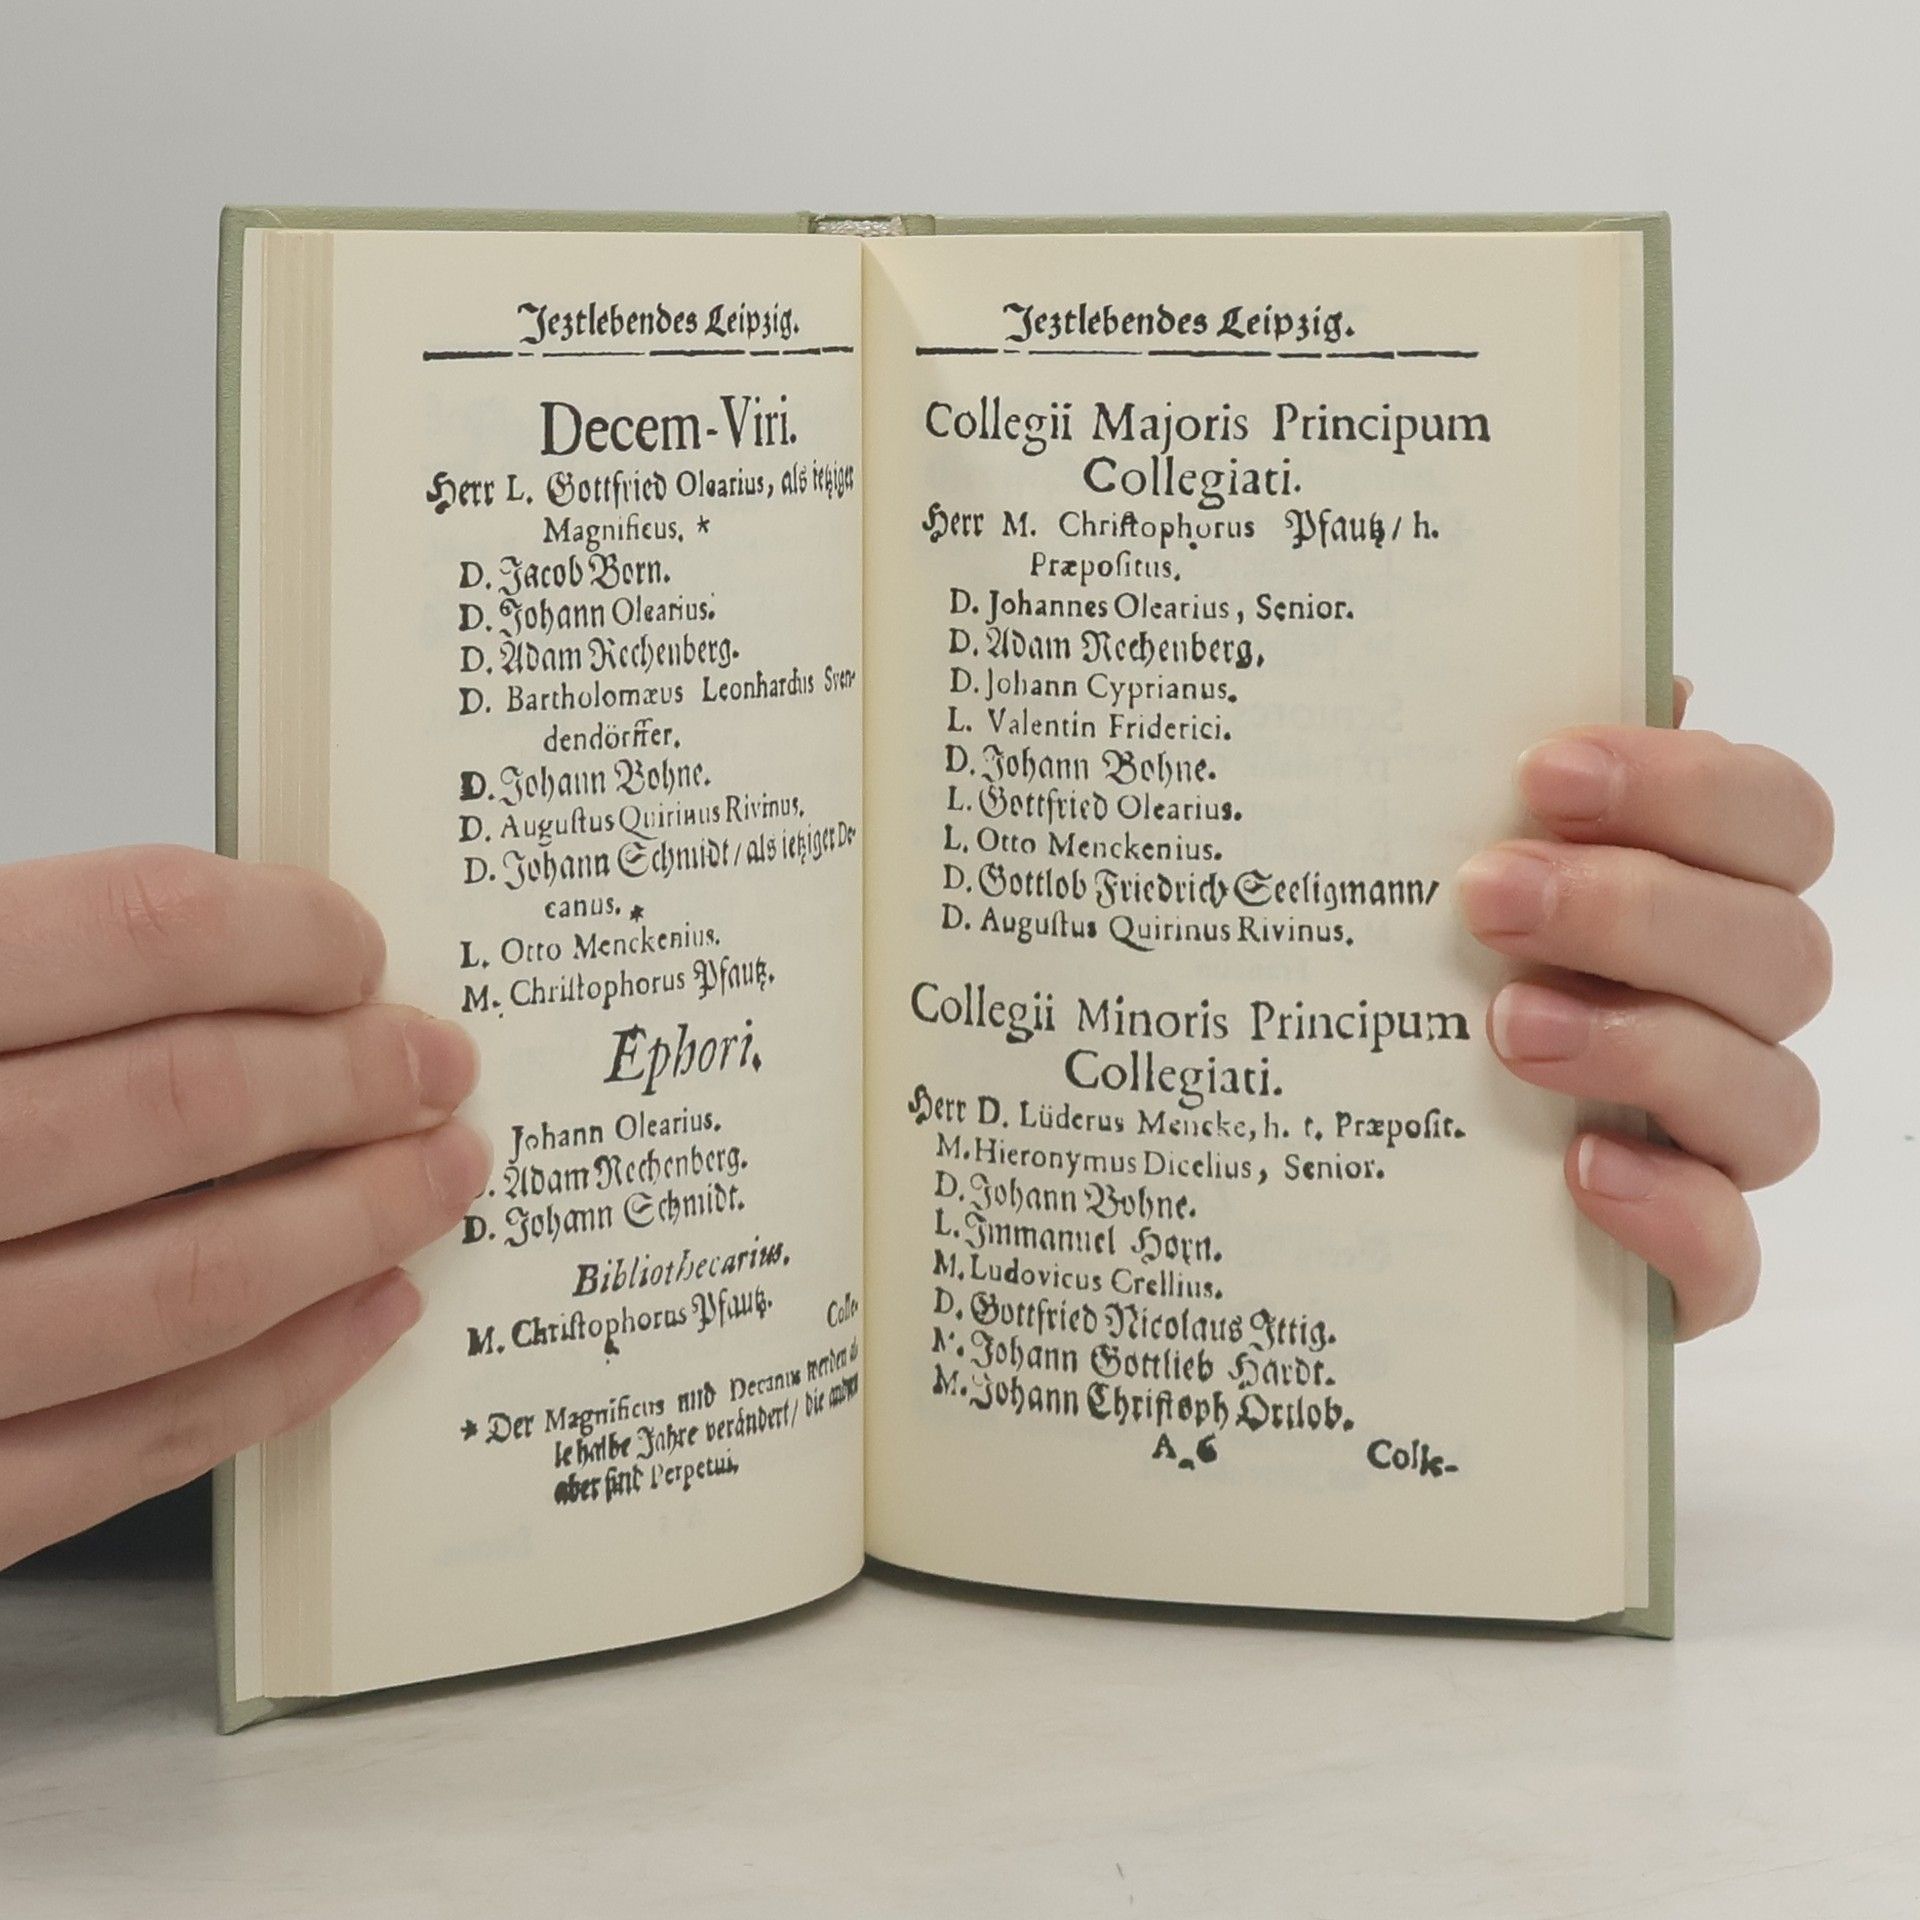 Jeztlebendes Leipzig.
Decem-Viri.
Herr L. Gottfried Olearius, als ietziger
Magnificus. *
D. Jacob Born.
D. Johann Olearius.
D. Adam Rechenberg.
D. Bartholomæus Leonhardus Sven-
dendörffer.
D. Johann Bohne.
D. Auguſtus Quirinus Rivinus.
D. Johann Schmidt / als ietziger De-
canus. *
L. Otto Menckenius.
M. Chriſtophorus Pfautz.
Ephori.
Johann Olearius.
D. Adam Rechenberg.
D. Johann Schmidt.
Bibliothecarius.
M. Chriſtophorus Pfautz.
Colle-
* Der Magnificus und Decanus werden al-
le halbe Jahre verändert / die andern
aber ſind Perpetui.
Jeztlebendes Leipzig.
Collegii Majoris Principum
Collegiati.
Herr M. Chriſtophorus Pfautz / h.
Præpoſitus.
D. Johannes Olearius, Senior.
D. Adam Rechenberg,
D. Johann Cyprianus.
L. Valentin Friderici.
D. Johann Bohne.
L. Gottfried Olearius.
L. Otto Menckenius.
D. Gottlob Friedrich Seeligmann /
D. Auguſtus Quirinus Rivinus.
Collegii Minoris Principum
Collegiati.
Herr D. Lüderus Mencke, h. t. Præpoſit.
M. Hieronymus Dicelius, Senior.
D. Johann Bohne.
L. Immanuel Horn.
M. Ludovicus Crellius.
D. Gottfried Nicolaus Ittig.
M. Johann Gottlieb Hardt.
M. Johann Chriſtoph Ortlob.
A 6
Colle-